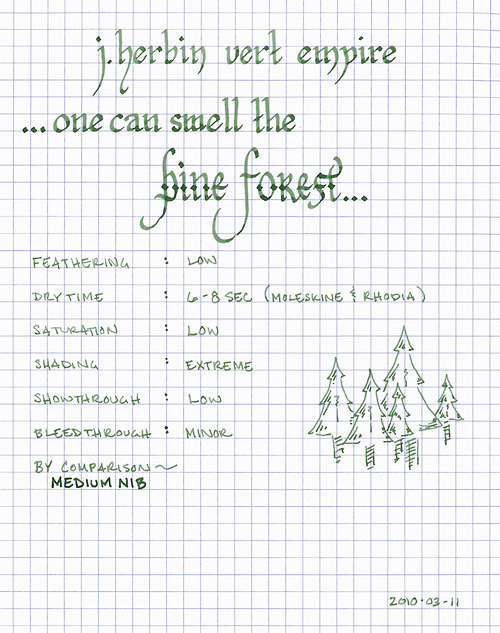 j. herbin vert empire
...one can smell the
pine forest...
FEATHERING : LOW
DRY TIME : 6-8 SEC (MOLESKINE & RHODIA)
SATURATION : LOW
SHADING : EXTREME
SHOWTHROUGH : LOW
BLEEDTHROUGH : MINOR
BY COMPARISON ~
MEDIUM NIB
2010·03-11